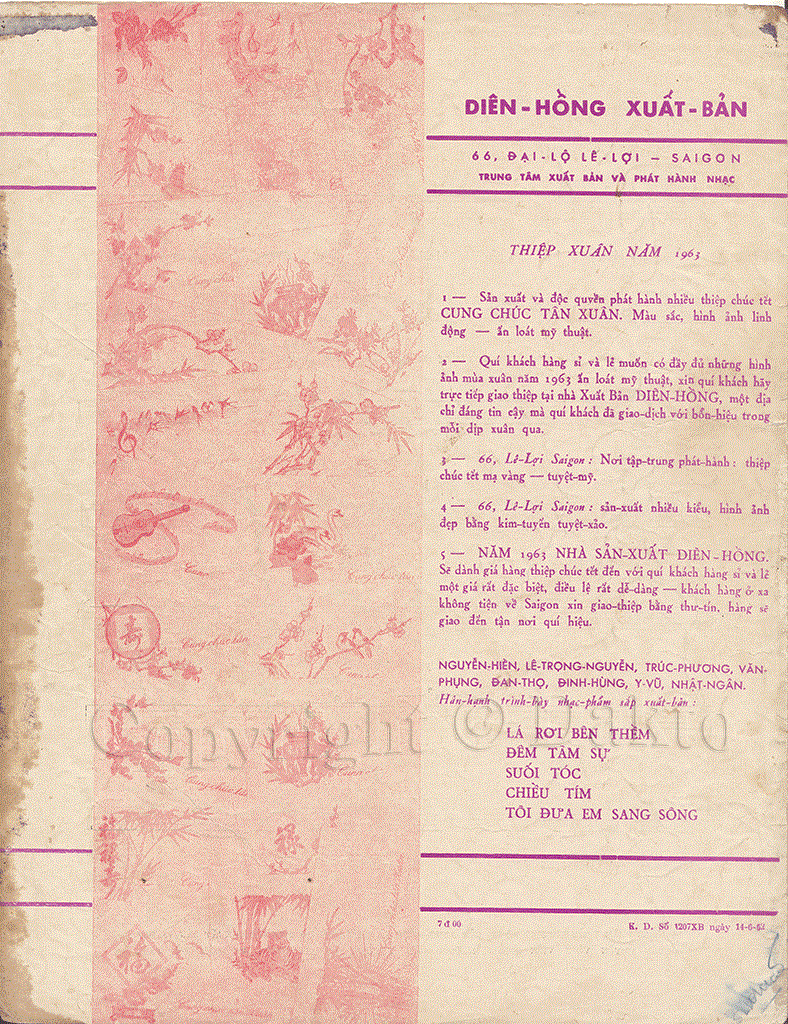 DIÊN-HỒNG XUẤT-BẢN
66, ĐẠI-LỘ LÊ-LỢI — SAIGON
TRUNG TÂM XUẤT BẢN VÀ PHÁT HÀNH NHẠC
THIỆP XUÂN NĂM 1963
1 — Sản xuất và độc quyền phát hành nhiều thiệp chúc tết
CUNG CHÚC TÂN XUÂN. Màu sắc, hình ảnh linh
động — ấn loát mỹ thuật.
2 — Quí khách hàng sỉ và lẻ muốn có đầy đủ những hình
ảnh mùa xuân năm 1963 ấn loát mỹ thuật, xin quí khách hãy
trực tiếp giao thiệp tại nhà Xuất Bản DIÊN-HỒNG, một địa
chỉ đáng tin cậy mà quí khách đã giao-dịch với bổn-hiệu trong
mỗi dịp xuân qua.
3 — 66, Lê-Lợi Saigon : Nơi tập-trung phát-hành : thiệp
chúc tết mạ vàng — tuyệt-mỹ.
4 — 66, Lê-Lợi Saigon : sản-xuất nhiều kiểu, hình ảnh
đẹp bằng kim-tuyến tuyệt-xảo.
5 — NĂM 1963 NHÀ SẢN-XUẤT DIÊN-HỒNG.
Sẽ dành giá hàng thiệp chúc tết đến với quí khách hàng sỉ và lẻ
một giá rất đặc biệt, điều lệ rất dễ-dàng — khách hàng ở xa
không tiện về Saigon xin giao-thiệp bằng thư-tín, hàng sẽ
giao đến tận nơi quí hiệu.
NGUYỄN-HIỀN, LÊ-TRỌNG-NGUYỄN, TRÚC-PHƯƠNG, VĂN-
PHỤNG, ĐAN-THỌ, ĐINH-HÙNG, Y-VŨ, NHẬT-NGÂN.
Hân-hạnh trình-bày nhạc-phẩm sắp xuất-bản :
LÁ RƠI BÊN THỀM
ĐÊM TÂM SỰ
SUỐI TÓC
CHIỀU TÍM
TÔI ĐƯA EM SANG SÔNG
7 đ 00
K. D. Số 1207XB ngày 14-6-62
Cung chúc
Cung chúc tân xuân
Cung chúc tân
壽
祿
福
Copyright © Dakto